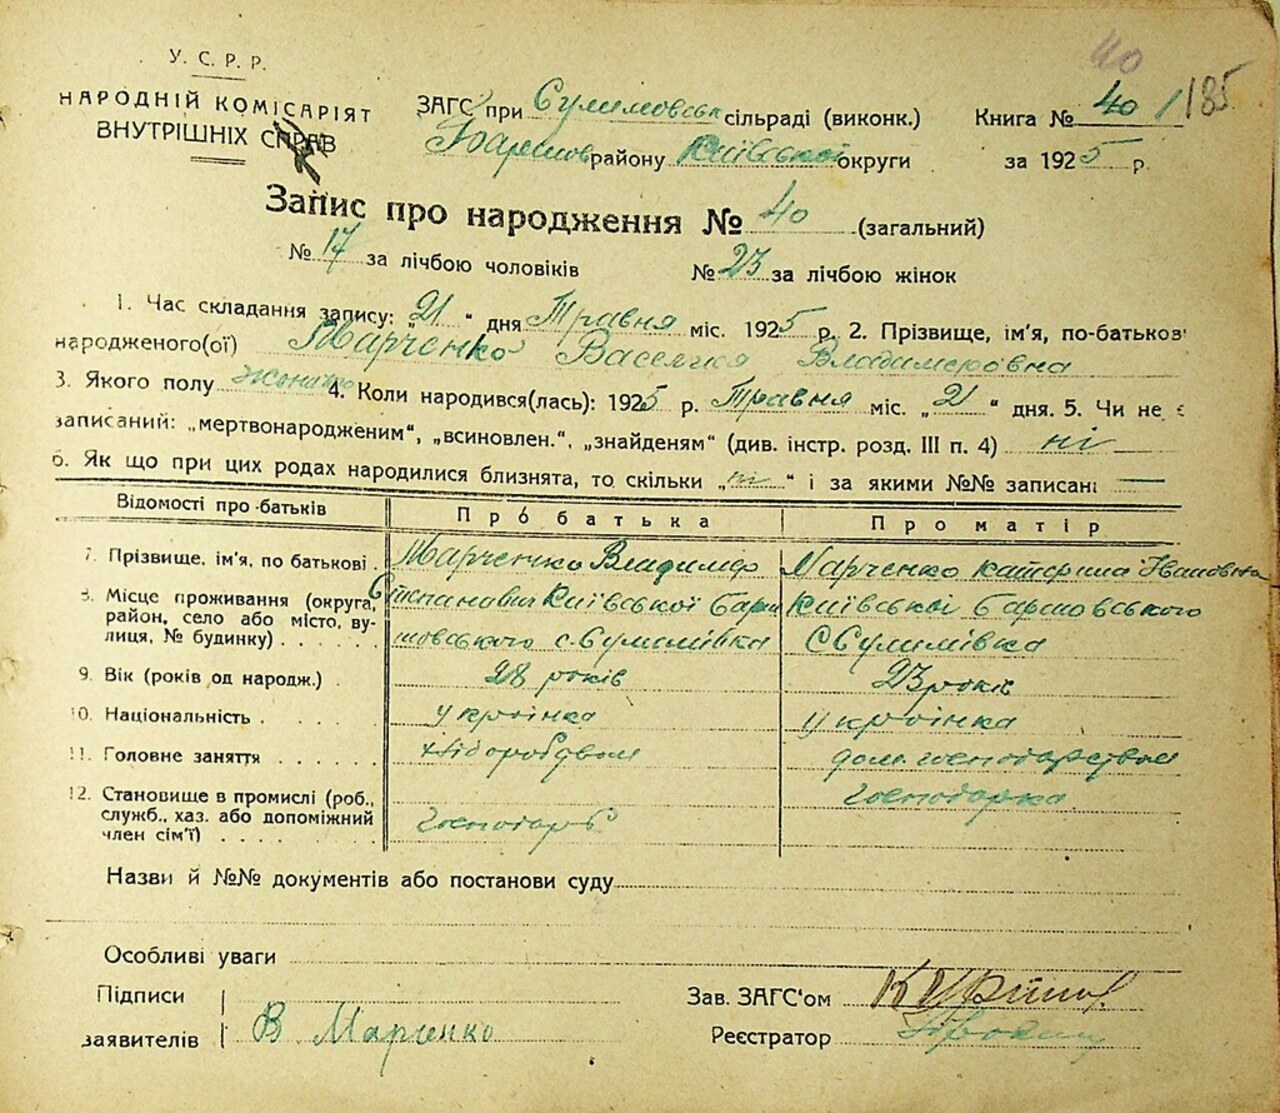 У. С. Р. Р.
НАРОДНІЙ КОМІСАРІЯТ
ВНУТРІШНІХ СПРАВ
40
185
ЗАГС при Сулимовськ сільраді (виконк.)
Баришов району Київської округи
Книга № 40
за 1925 р.
Запис про народження № 40 (загальний)
№ 17 за лічбою чоловіків № 23 за лічбою жінок
1. Час складання запису: „21“ дня Травня міс. 1925 р. 2. Прізвище, ім'я, по-батьков
народженого(ої) Марченко Василия Владимеровна
3. Якого полу 4. Коли народився(лась): 1925 р. Травня міс. „21“ дня. 5. Чи не є
записаний: „мертвонародженим“, „всиновлен.“, „знайденям“ (див. інстр. розд. III п. 4) ні
6. Як що при цих родах народилися близнята, то скільки „ні“ і за якими №№ записані —
Відомості про батьків Про батька Про матір
7. Прізвище, ім'я, по батькові . Марченко Владимір Марченко Катерина Івановна
8. Місце проживання (округа, Степанович Київської Бари Київської Баршовського
район, село або місто, ву-
лиця, № будинку) . . . . . . шовського с. Сулимівка С Сулимівка
9. Вік (років од народж.) . 28 років 23 років
10. Національність . . . . . . україінка україінка
11. Головне заняття . . . . . . хліборобством дом. господарством
12. Становище в промислі (роб., господарка
служб., хаз. або допоміжний господарь
член сім'ї) . . . . . . .
Назви й №№ документів або постанови суду
Особливі уваги
Підписи
заявителів В Марченко
Зав. ЗАГС'ом
Реєстратор